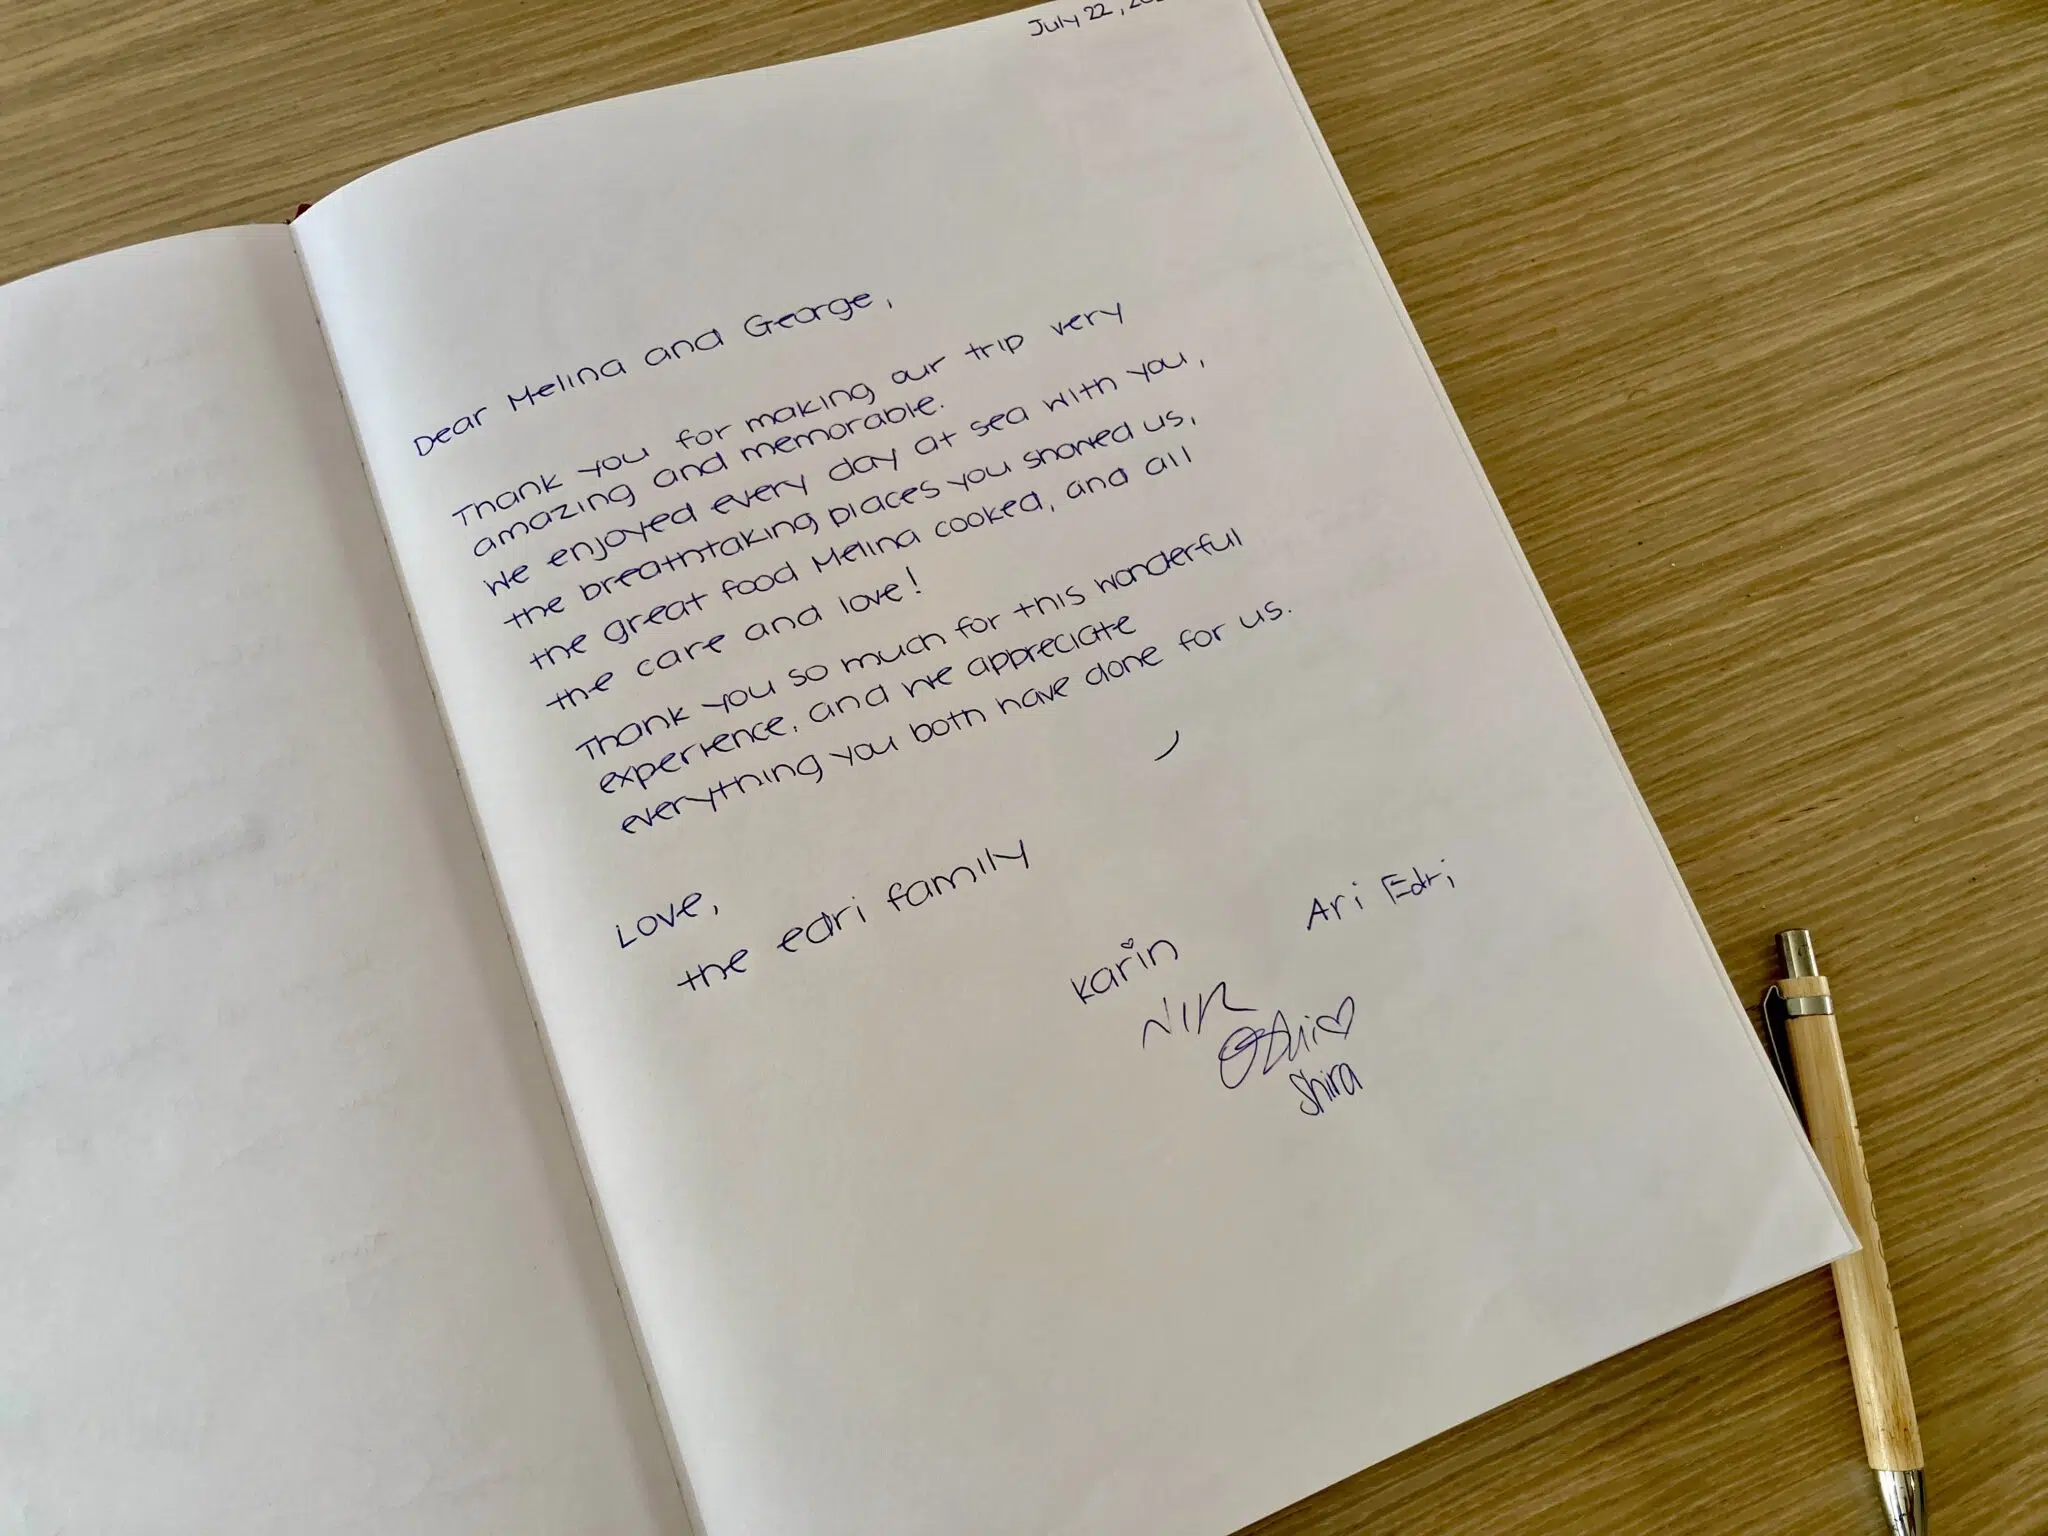 July 22,
Dear Melina and George,
Thank you for making our trip very
amazing and memorable.
We enjoyed every day at sea with you,
the breathtaking places you showed us,
the great food Melina cooked, and all
the care and love!
Thank you so much for this wonderful
experience, and we appreciate
everything you both have done for us.
Love,
the edri family
Ari Edri
Karin
NIR
Shira